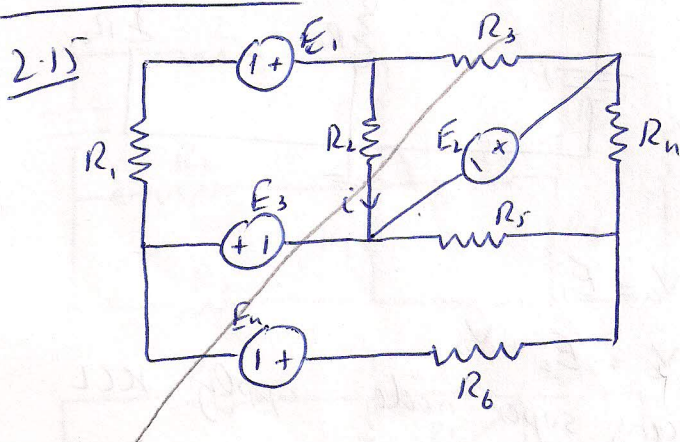 2.15
E1
R3
R1
R2
E2
Rn
+
-
i
E3
R5
+
-
En
-
+
R6